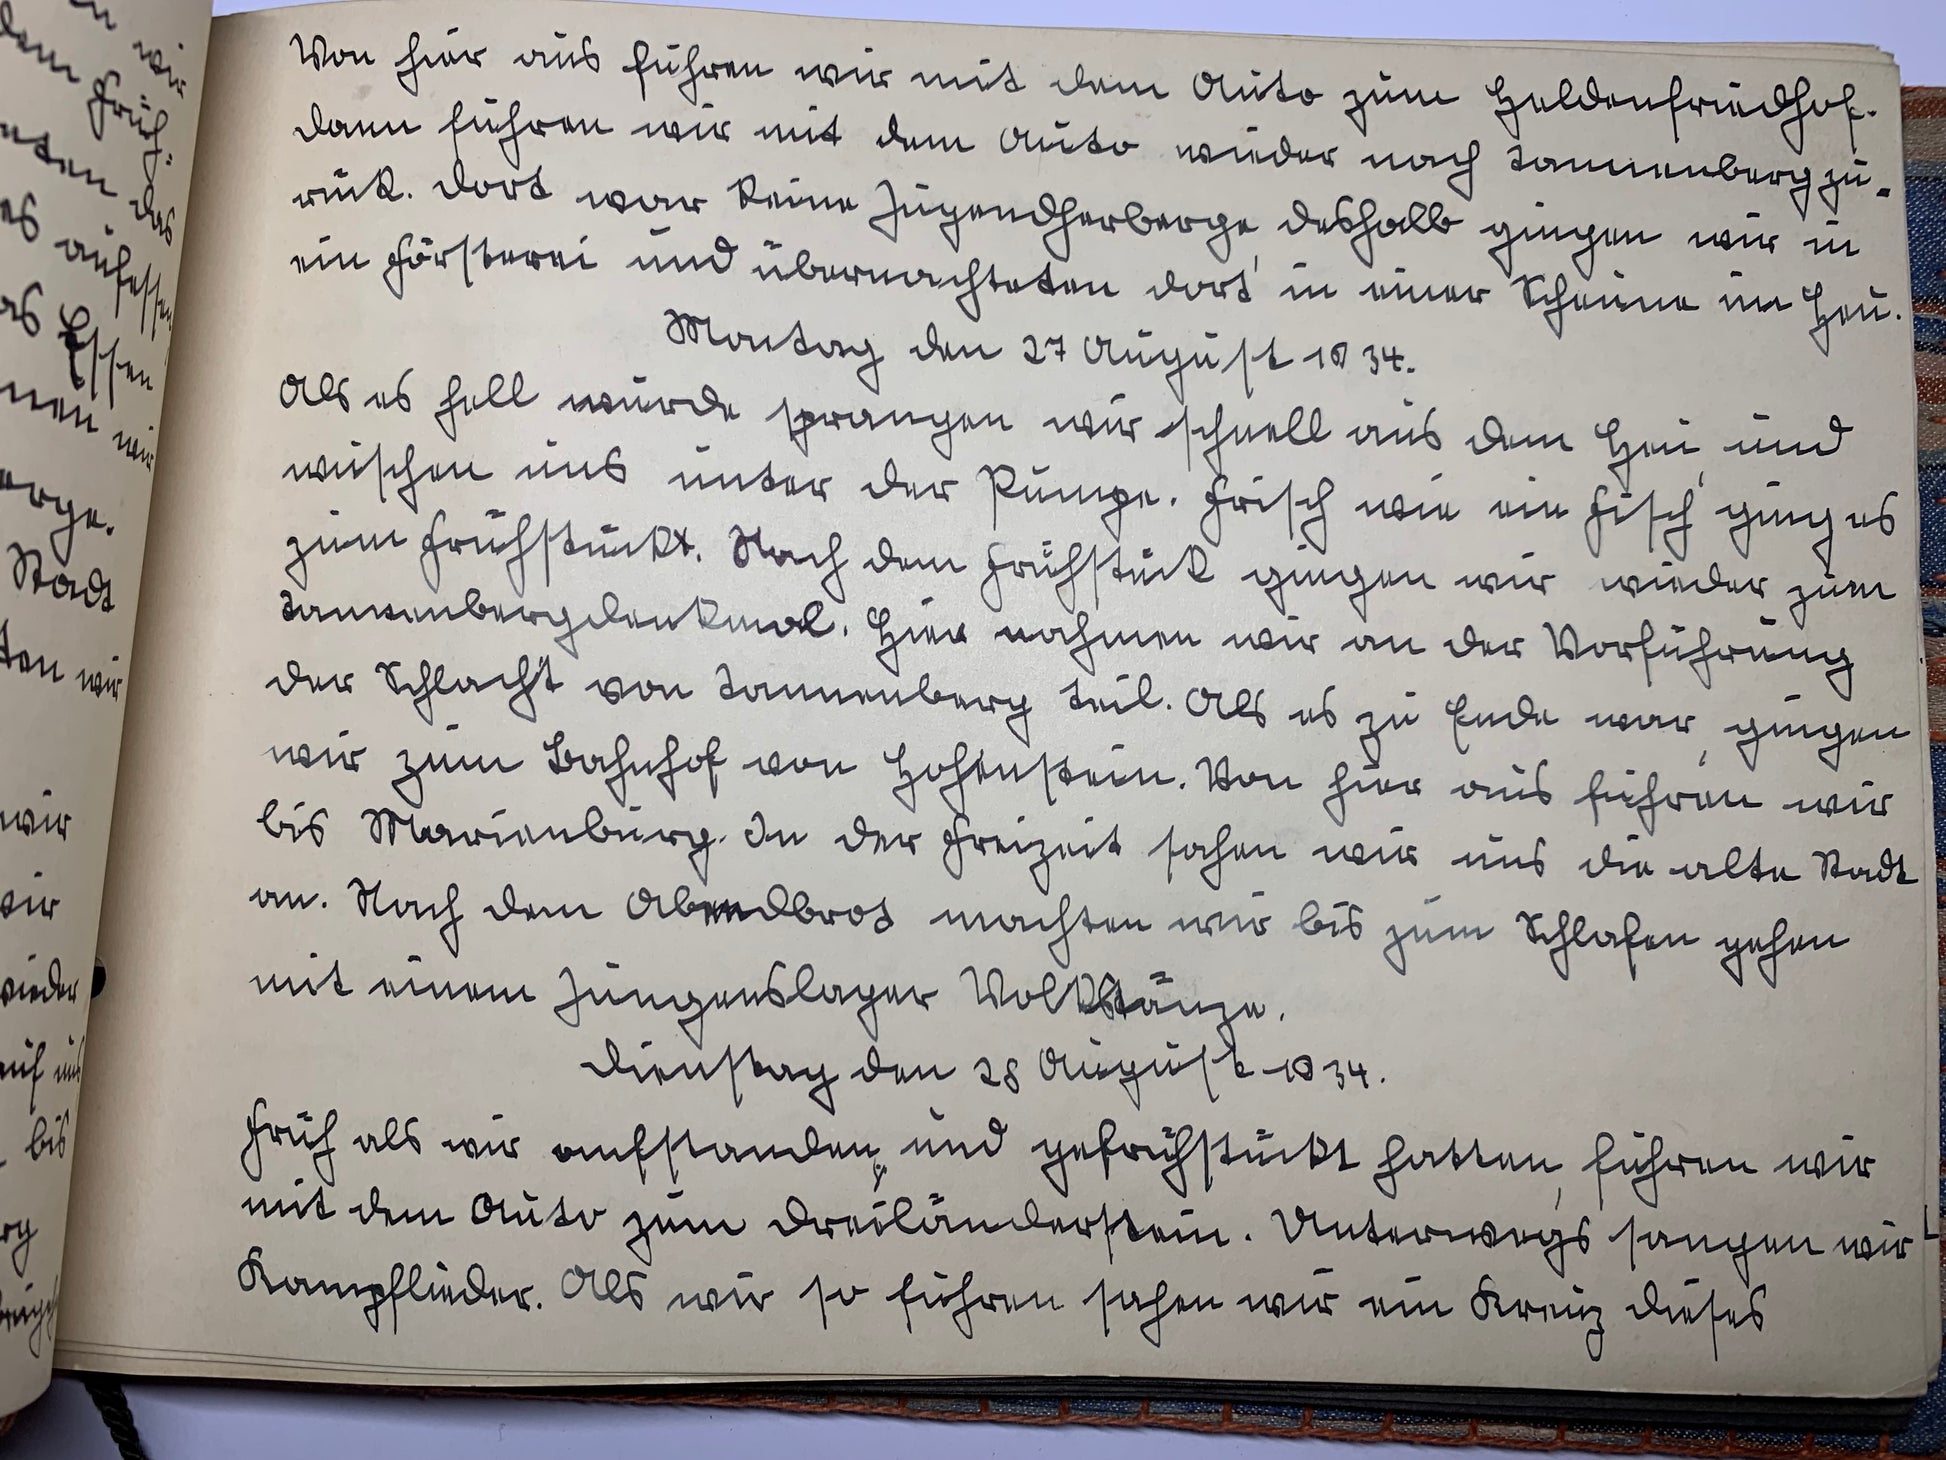 en wir
dem Früh-
eten das
es aufessen
as Essen
nen wir
erge.
Stadt
ten wir
wir
wir
wieder
auf uns
bis
rg
Von hier aus fuhren wir mit dem Auto zum Heldenfriedhof.
dann fuhren wir mit dem Auto wieder nach Tannenberg zu-
rück. Dort war keine Jugendherberge, deshalb gingen wir in
ein Försterei und übernachteten dort in einer Scheune im Heu.
Montag den 27 August 1934.
Als es hell wurde sprangen wir schnell aus dem Heu, und
wuschen uns unter der Pumpe. Frisch wie ein Fisch ging es
zum Frühstückt. Nach dem Frühstück gingen wir wieder zum
Tannenbergdenkmal. Hier nahmen wir an der Vorführung
der Schlacht von Tannenberg teil. Als es zu Ende war, gingen
wir zum Bahnhof von Hohenstein. Von hier aus fuhren wir
bis Marienburg. In der Freizeit sahen wir uns die alte Stadt
an. Nach dem Abendbrot machten wir bis zum Schlafen gehen
mit einem Jungenslager Volkstänze.
Dienstag den 28 August 1934.
Früh als wir aufstanden, und gefrühstückt hatten, fuhren wir
mit dem Auto zum Dreiländerstein. Unterwegs sangen wir
Kampflieder. Als wir so fuhren sahen wir ein Kreuz dieses